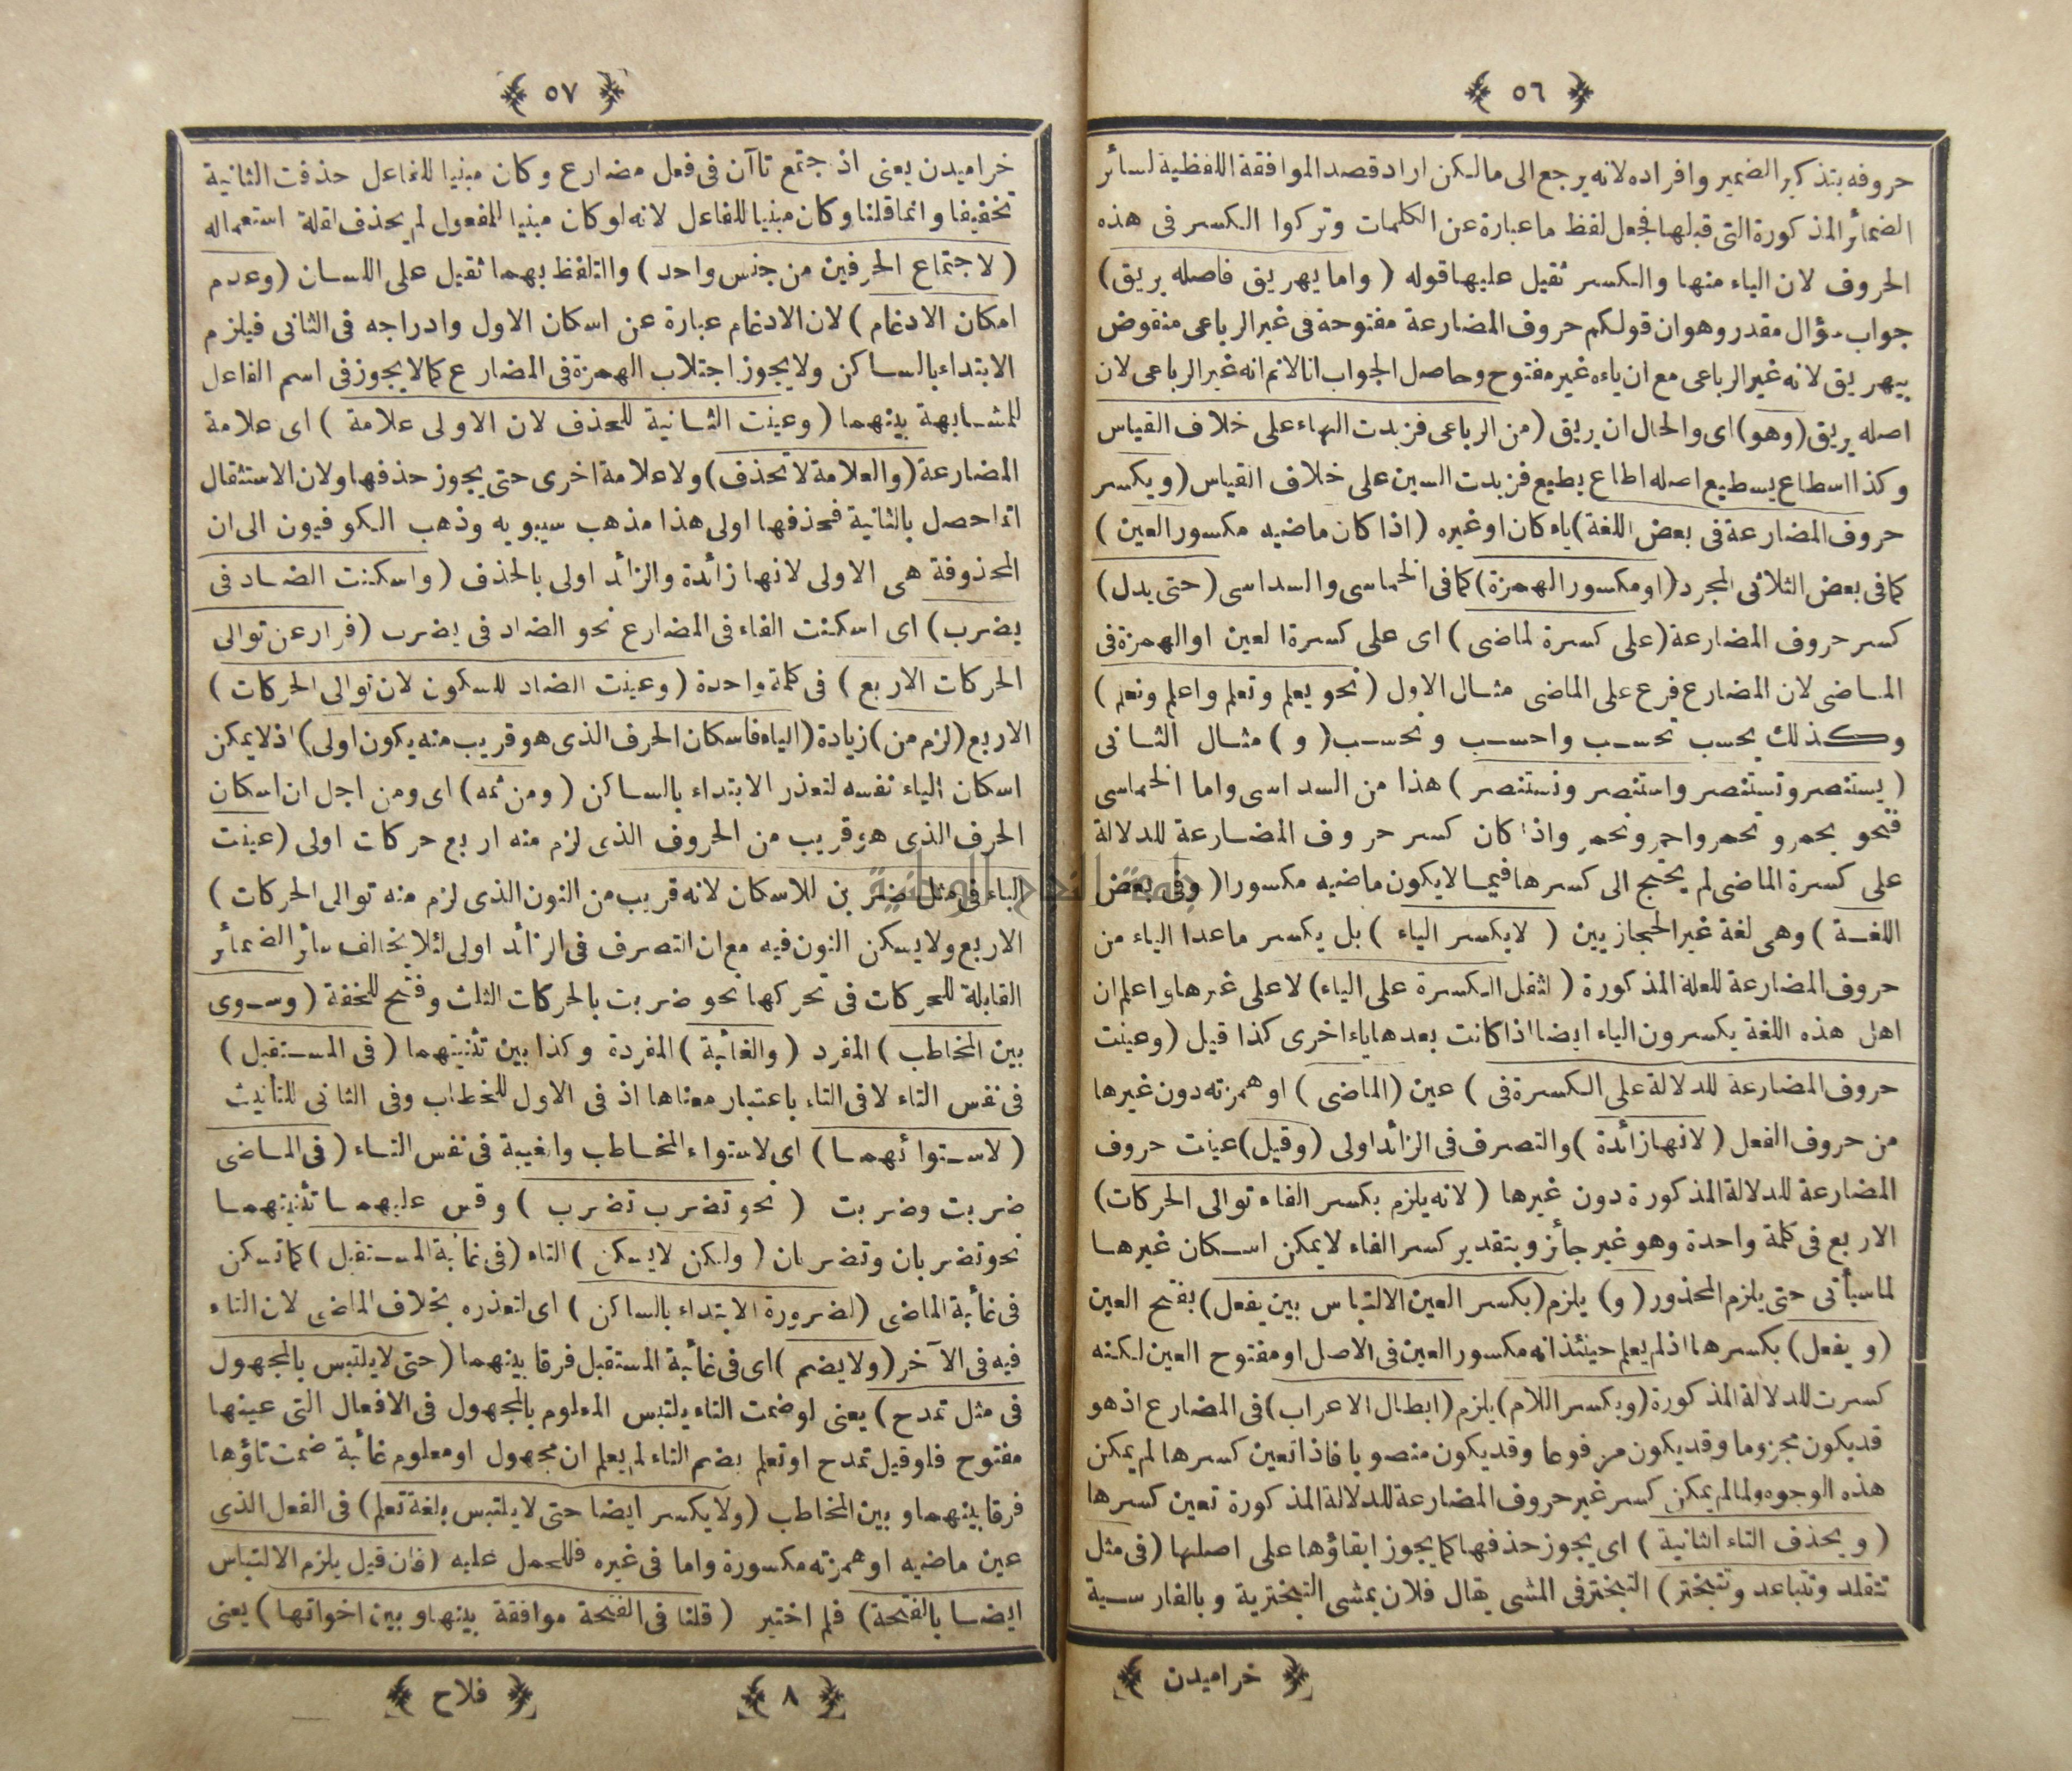 ﴿ ٥٦ ﴾
حروفه بتذكير الضمير وافراده لانه يرجع الى ما لكن اراد قصد الموافقة اللفظية لسائر
الضمائر المذكورة التى قبلها فجعل لفظ ما عبارة عن الكلمات وتركوا الكسر فى هذه
الحروف لان الياء منها والكسر ثقيل عليها قوله ( واما يهريق فاصله يريق )
جواب سؤال مقدر وهو ان قولكم حروف المضارعة مفتوحة فى غير الرباعى منقوض
بيهريق لانه غير الرباعى مع ان ياءه غير مفتوح وحاصل الجواب انا لانم انه غير الرباعى لان
اصله يريق (وهو) اى والحال ان يريق (من الرباعى فزيدت الهاء على خلاف القياس
وكذا اسطاع يسطيع اصله اطاع يطيع فزيدت السين على خلاف القياس (ويكسر
حروف المضارعة فى بعض اللغة) ياء كان او غيره (اذا كان ماضيه مكسور العين )
كما فى بعض الثلاثى المجرد (او مكسور الهمزة) كما فى الخماسى والسداسى (حتى يدل)
كسر حروف المضارعة (على كسرة لماضى ) اى على كسرة العين او الهمزة فى
الماضى لان المضارع فرع على الماضى مثال الاول (نحو يعلم وتعلم واعلم ونعلم )
وكذلك يحسب تحسب واحسب ونحسب (و) مثال الثانى
( يستنصر وتستنصر واستنصر ونستنصر ) هذا من السداسى واما الخماسى
فنحو يحمر وتحمر واحمر ونحمر واذا كان كسر حروف المضارعة للدلالة
على كسرة الماضى لم يحتج الى كسرها فيما لايكون ماضيه مكسورا ( وفى بعض
اللغة ) وهى لغة غير الحجازيين ( لايكسر الياء ) بل يكسر ماعدا الياء من
حروف المضارعة للعلة المذكورة ( لثقل الكسرة على الياء) لا على غيرها واعلم ان
اهل هذه اللغة يكسرون الياء ايضا اذا كانت بعدها ياء اخرى كذا قيل (وعينت
حروف المضارعة للدلالة على الكسرة فى ) عين (الماضى ) او همزته دون غيرها
من حروف الفعل ( لانها زائدة ) والتصرف فى الزائد اولى (وقيل) عينت حروف
المضارعة للدلالة المذكورة دون غيرها ( لانه يلزم بكسر الفاء توالى الحركات )
الاربع فى كلمة واحدة وهو غير جائز وبتقدير كسر الفاء لايمكن اسكان غيرها
لما سيأتى حتى يلزم المحذور ( و) يلزم (بكسر العين الالتباس بين يفعل ) بفتح العين
(ويفعل ) بكسرها اذ لم يعلم حينئذ انه مكسور العين فى الاصل او مفتوح العين لكنه
كسرت للدلالة المذكورة (وبكسر اللام) يلزم (ابطال الاعراب) فى المضارع اذ هو
قد يكون مجزوما وقد يكون مرفوعا وقد يكون منصوبا فاذا تعين كسرها لم يمكن
هذه الوجوه ولما لم يمكن كسر غير حروف المضارعة للدلالة المذكورة تعين كسرها
( ويحذف التاء الثانية ) اى يجوز حذفها كما يجوز ابقاؤها على اصلها (فى مثل
تتقلد وتتباعد وتتبختر) التبختر فى المشى يقال فلان يمشى التبخترية وبالفارسية
﴿ خراميدن ﴾
﴿ ٥٧ ﴾
خراميدن يعنى اذ اجتمع تاآن فى فعل مضارع وكان مبنيا للفاعل حذفت الثانية
تخفيفا وانما قلنا وكان مبنيا للفاعل لانه لو كان مبنيا للمفعول لم يحذف لقلة استعماله
( لاجتماع الحرفين من جنس واحد ) والتلفظ بهما ثقيل على اللسان (وعدم
امكان الادغام ) لان الادغام عبارة عن اسكان الاول وادراجه فى الثانى فيلزم
الابتداء بالساكن ولايجوز اجتلاب الهمزة فى المضارع كما لايجوز فى اسم الفاعل
للمشابهة بينهما ( وعينت الثانية للحذف لان الاولى علامة ) اى علامة
المضارعة (والعلامة لاتحذف) ولا علامة اخرى حتى يجوز حذفها ولان الاستثقال
انما حصل بالثانية فحذفها اولى هذا مذهب سيبويه وذهب الكوفيون الى ان
المحذوفة هى الاولى لانها زائدة والزائد اولى بالحذف (واسكنت الضاد فى
يضرب) اى اسكنت الفاء فى المضارع نحو الضاد فى يضرب (فرار عن توالى
الحركات الاربع ) فى كلمة واحدة (وعينت الضاد للسكون لان توالى الحركات )
الاربع (لزم من) زيادة (الياء فاسكان الحرف الذى هو قريب منه يكون اولى) اذ لايمكن
اسكان الياء نفسه لتعذر الابتداء بالساكن ( ومن ثمه ) اى ومن اجل ان اسكان
الحرف الذى هو قريب من الحروف الذى لزم منه اربع حركات اولى (عينت
الباء فى مثل ضربن للاسكان لانه قريب من النون الذى لزم منه توالى الحركات )
الاربع ولايسكن النون فيه مع ان التصرف فى الزائد اولى لئلا يخالف سائر الضمائر
القابلة للحركات فى تحركها نحو ضربت بالحركات الثلث وفتح للخفة (وسوى
بين المخاطب ) المفرد ( والغائبة ) المفردة وكذا بين تثنيتهما ( فى المستقبل )
فى نفس التاء لا فى التاء باعتبار معناها اذ فى الاول للخطاب وفى الثانى للتأنيث
( لاستوائهما ) اى لاستواء المخاطب والغيبة فى نفس التاء ( فى الماضى
ضربت وضربت ( نحو تضرب تضرب ) وقس عليهما تثنيتهما
نحو تضربان وتضربان ( ولكن لايسكن ) التاء (فى غائبة المستقبل ) كما تسكن
فى غائبة الماضى (لضرورة الابتداء بالساكن ) اى لتعذره بخلاف الماضى لان التاء
فيه فى الآخر (ولايضم ) اى فى غائبة المستقبل فرقا بينهما (حتى لايلتبس بالمجهول
فى مثل تمدح ) يعنى لو ضمت التاء يلتبس المعلوم بالمجهول فى الافعال التى عينها
مفتوح فلو قيل تمدح او تعلم بضم التاء لم يعلم ان مجهول او معلوم غائبة ضمت تاؤها
فرقا بينهما وبين المخاطب (ولايكسر ايضا حتى لايلتبس بلغة تعلم ) فى الفعل الذى
عين ماضيه او همزته مكسورة واما فى غيره فللحمل عليه (فان قيل يلزم الالتباس
ايضا بالفتحة) فلم اختير ( قلنا فى الفتحة موافقة بينها وبين اخواتها ) يعنى
﴿ ٨ ﴾ ﴿ فلاح ﴾